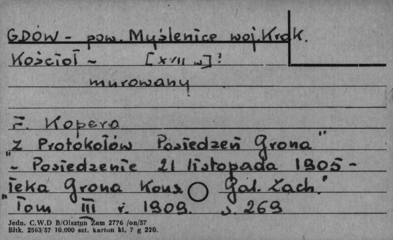 GDÓW - pow. Myślenice woj. Krak.
Kościół - [XVII w]?
murowany
F. Kopera
"Z Protokołów Posiedzeń Grona"
- Posiedzenie 21 listopada 1905 -
"Teka Grona Kons. Gal. Zach."
Tom III r. 1909. s. 269
Jedn. C.W.D B/Olsztyn Zam 2776 /on/57
Bltk. 2563/57 10.000 szt. karton kl. 7 g 220.